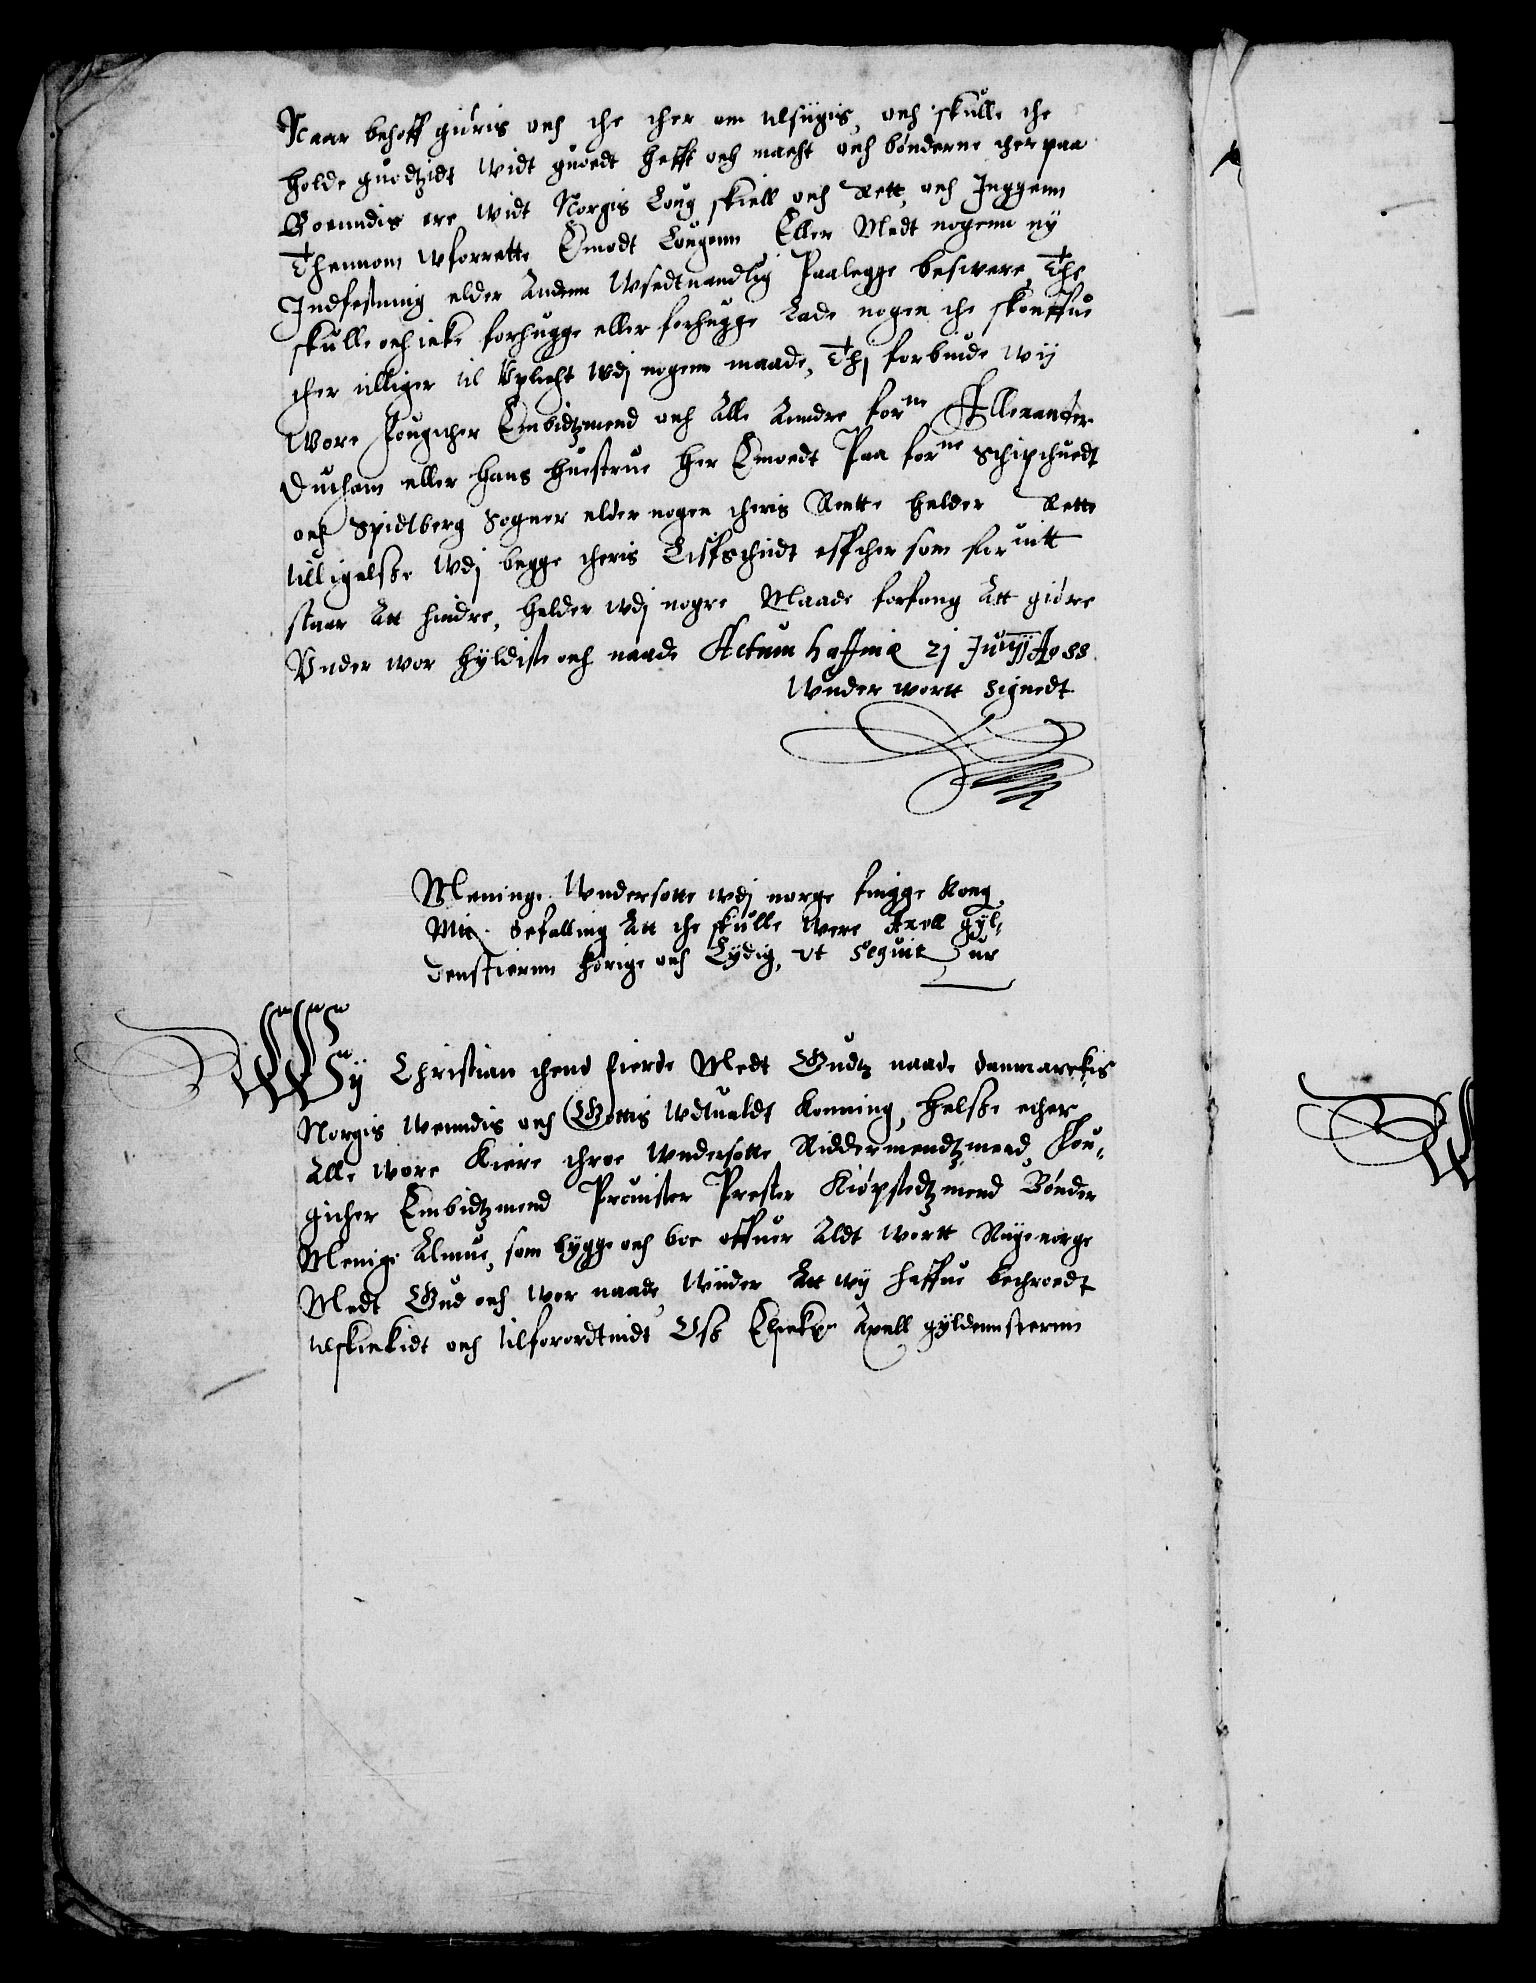 Naar behoff giøris och the ther om tilsiigis, och skulle the
holde guodtzidt widt guodt hefft och macht och bønderne ther paa
Boenndis ere widt Norgis Loug skiell och Rett, och Inggenn
Thennom wforrette Emodt Lougenn Eller Medt nogenn ny
Indfestning elder Andenn Usedtuandlig Paalegge beswere, The
skulle och icke forhugge eller forhugge Lade nogen the skouffue
ther ligger til Uplicht wdj nogenn maade, Thj forbiude wij
wore Fougither Embidtzmend och Alle Anndre forne Allexander
Durham eller hans hustrue her Emoedt Paa forne Schiptuedt
och Spidlberg Sogner elder nogen theris Rentte helder Rette
tilligelsse wdj begge theris Liffstiidt effther som for uitt
staar Att hindre, helder wdj nogre Maade forfang Att giøre
Under wor hyldiste och naade Actum Haffniæ 21 Junij Ao 88
Wnder wortt Signedt
Meninge Wndersotte wdj norge fingge Kong.
Mtz. befalling Att the skulle were Axell gyl-
denstiernn hørige och Lydig, vt Sequitur
Wy Christian thend fierde Medt Gudtz naade danmarckis
Norgis wenndis och Gottis wdtualdt Konning, Helsse ether
Alle wore Kiere throe wndersotte Riddermendtzmend, Fou-
gither Embidtzmend Prouister Prester Kiøpstedtzmend Bønder
Menige Almue, som bygge och boe offuer Aldt wortt Riige norge
Medt Gud och wor naade, Wiider Att wij haffue bethroedt
tilskickidt och tilforordtnidt Oss Elskelige Axell gyldennstiernn